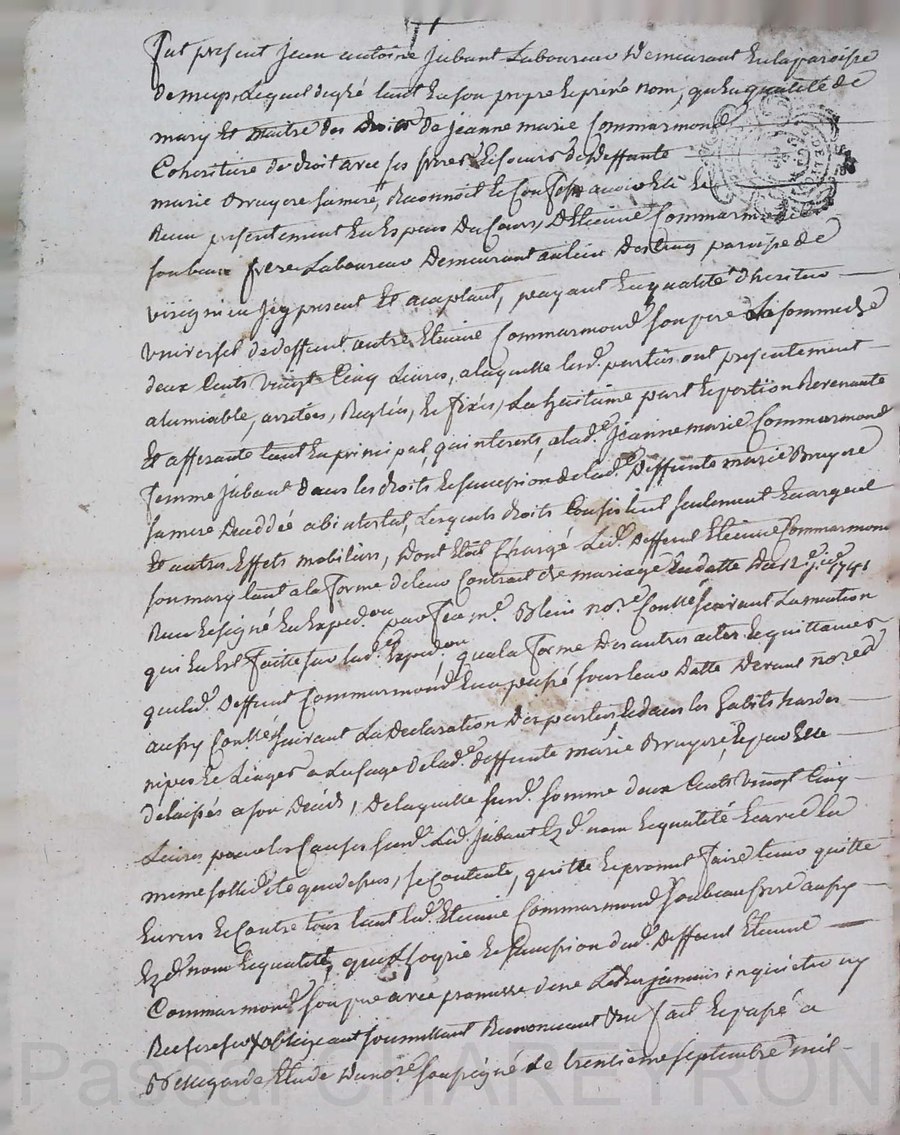 fut present jean antoine jubant Laboureur demeurant en la paroisse
de lequel de gré tant en son propre et privé nom, qu'en qualité de
mary et maitre des droits de jeanne marie Commarmond
Coheritiere de droit avec ses freres et soeurs de deffante
marie Bruyere sa mere, Reconnoit et Confesse avoir Eté et
Receu presentement en Espece du Cours, D'Etienne Commarmond
son beau frere Laboureur Demeurant au lieu Des paroisse de
virignieu jcy present et acceptant, payant en qualité d'heritier
vniversel de deffunt autre Etienne Commarmond son pere La somme de
deux Cents vingt Cinq Livres, a laquelle lesd. parties ont presentement
a lamiable, arretées, Reglées, et fixés, La part et portion Revenante
Et afferante tant en principal, qu'interets, a lad.e jeanne marie Commarmond
femme jubant dans les droits et succession de lad.e Deffunte marie Bruyere
sa mere Decedée abintestat, Lesquels droits Consistent seulement en argent
et autres Effets mobiliers, dont Etoit Chargé Led. Deffunt Etienne Commarmond
son mary tant a la forme de leur Contrat de mariage En datte Du 1741
Receu et signé en Exped.on par feu m.e Blein no.re suivant La mention
qui En Est faitte sur lad.e Exped.on, qu'a la forme Des autres actes et quittances
que led. Deffunt Commarmond En a passé sous leur Datte Devant no.re
aussy suivant La Declaration Des parties et dans les habits hardes
nipes et Linges a Lusage de lad.e deffunte marie Bruyere, et par Elle
delaissés a son Decés, De laquelle susd. somme deux Cents vingt Cinq
Livres pour les Causes susd. Led. jubant nom et qualité et avec la
meme sollidité que dessus, se Contente, quitte et promet faire tenir quitte
Envers et Contre tous tant led. Etienne Commarmond son beau frere aussy
nom et qualité, que et succession dud. Deffunt Etienne
Commarmond son pere avec promesse jamais inquietter ny
obligeant soumettant Renonceant fait et passé a
Etude Du no.re soussigné le trentieme septembre mil
Pascal CHAREYRON